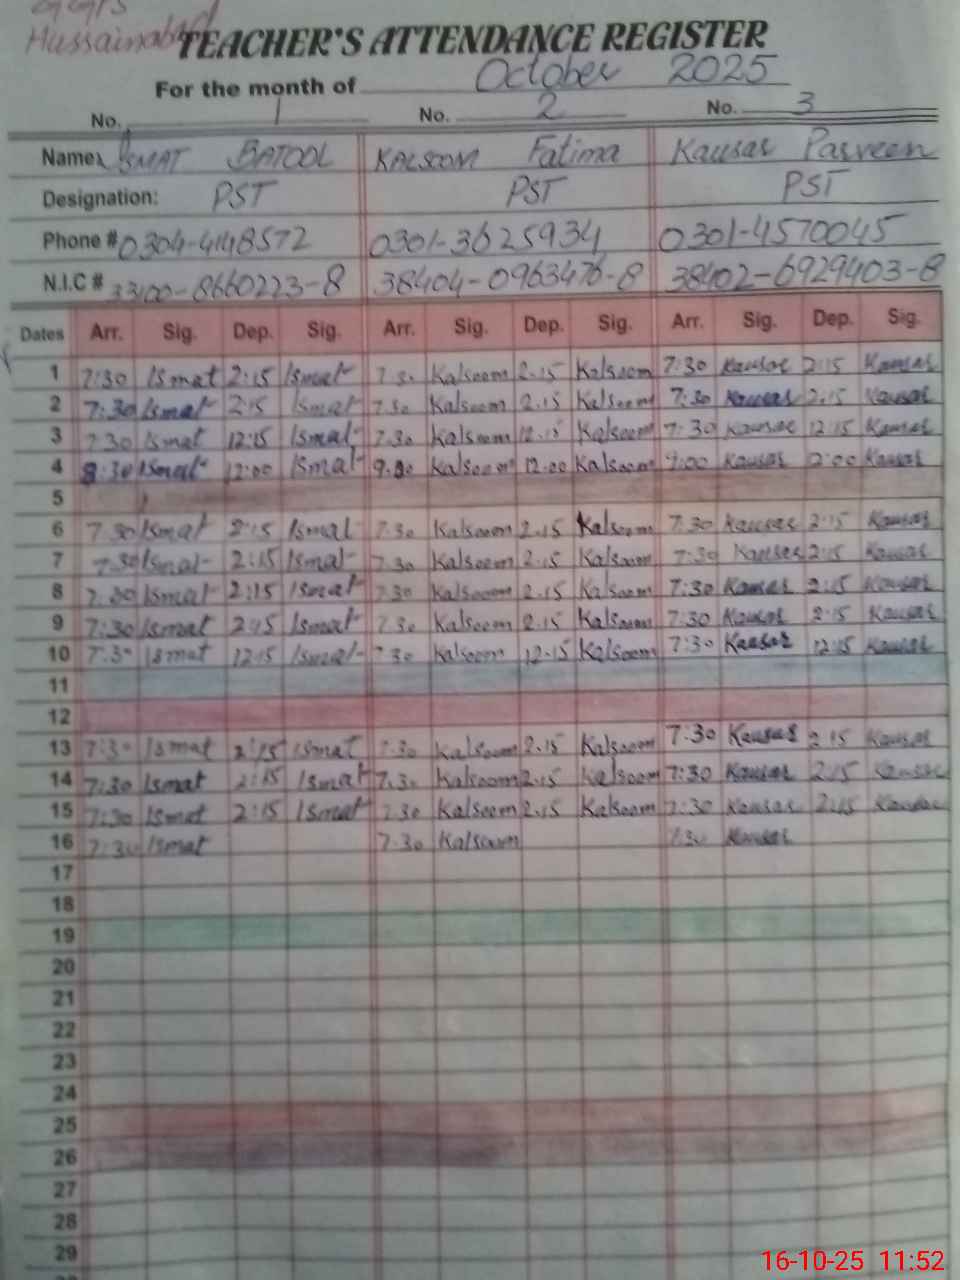 GGPS
Hussainabad
TEACHER'S ATTENDANCE REGISTER
For the month of October 2025
No. 1 No. 2 No. 3
Name: ISMAT BATOOL KALSOOM Fatima Kausar Parveen
Designation: PST PST PST
Phone # 0304-4148572 0301-3625934 0301-4570045
N.I.C # 33100-8660223-8 38404-0963476-8 38402-6929403-8
Dates Arr. Sig. Dep. Sig. Arr. Sig. Dep. Sig. Arr. Sig. Dep. Sig.
1 7:30 Ismat 2:15 Ismat 7.30 Kalsoom 2.15 Kalsoom 7:30 Kausar 2:15 Kausar
2 7:30 Ismat 2:15 Ismat 7.30 Kalsoom 2.15 Kalsoom 7:30 Kausar 2:15 Kausar
3 7:30 Ismat 12:15 Ismat 7.30 Kalsoom 12.15 Kalsoom 7:30 Kausar 12:15 Kausar
4 8:30 Ismat 12:00 Ismat Kalsoom 12.00 Kalsoom 9:00 Kausar 2:00 Kausar
5
6 7:30 Ismat 2:15 Ismat 7.30 Kalsoom 2.15 Kalsoom 7:30 Kausar 2:15 Kausar
7 7:30 Ismat 2:15 Ismat 7.30 Kalsoom 2.15 Kalsoom 7:30 Kausar 2:15 Kausar
8 7:30 Ismat 2:15 Ismat 7.30 Kalsoom 2.15 Kalsoom 7:30 Kausar 2:15 Kausar
9 7:30 Ismat 2:15 Ismat 7.30 Kalsoom 2.15 Kalsoom 7:30 Kausar 2:15 Kausar
10 7:30 Ismat 12:15 Ismat 7.30 Kalsoom 12.15 Kalsoom 7:30 Kausar 12:15 Kausar
11
12
13 7:30 Ismat 2:15 Ismat 7.30 Kalsoom 2.15 Kalsoom 7:30 Kausar 2:15 Kausar
14 7:30 Ismat 2:15 Ismat 7.30 Kalsoom 2.15 Kalsoom 7:30 Kausar 2:15 Kausar
15 7:30 Ismat 2:15 Ismat 7.30 Kalsoom 2.15 Kalsoom 7:30 Kausar 2:15 Kausar
16 7:30 Ismat 7.30 Kalsoom 7:30 Kausar
17
18
19
20
21
22
23
24
25
26
27
28
29
16-10-25 11:52